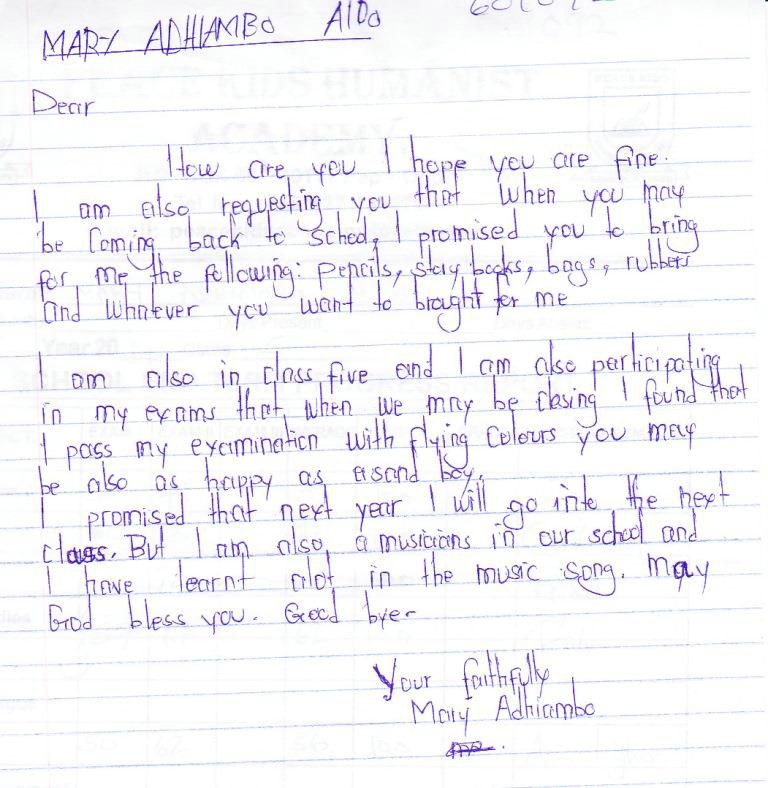 MARY ADHIAMBO A100
Dear
How are you I hope you are fine.
I am also requesting you that when you may
be Coming back to school, I promised you to bring
for me the following: pencils, story books, bags, rubbers
and whatever you want to brought for me
I am also in class five and I am also participating
in my exams that when we may be closing I found that
I pass my examination with flying colours you may
be also as happy as a sand boy.
I promised that next year I will go into the next
class. But I am also a musicians in our school and
I have learnt alot in the music song. May
God bless you. Good bye-
Your faithfully
Mary Adhiambo